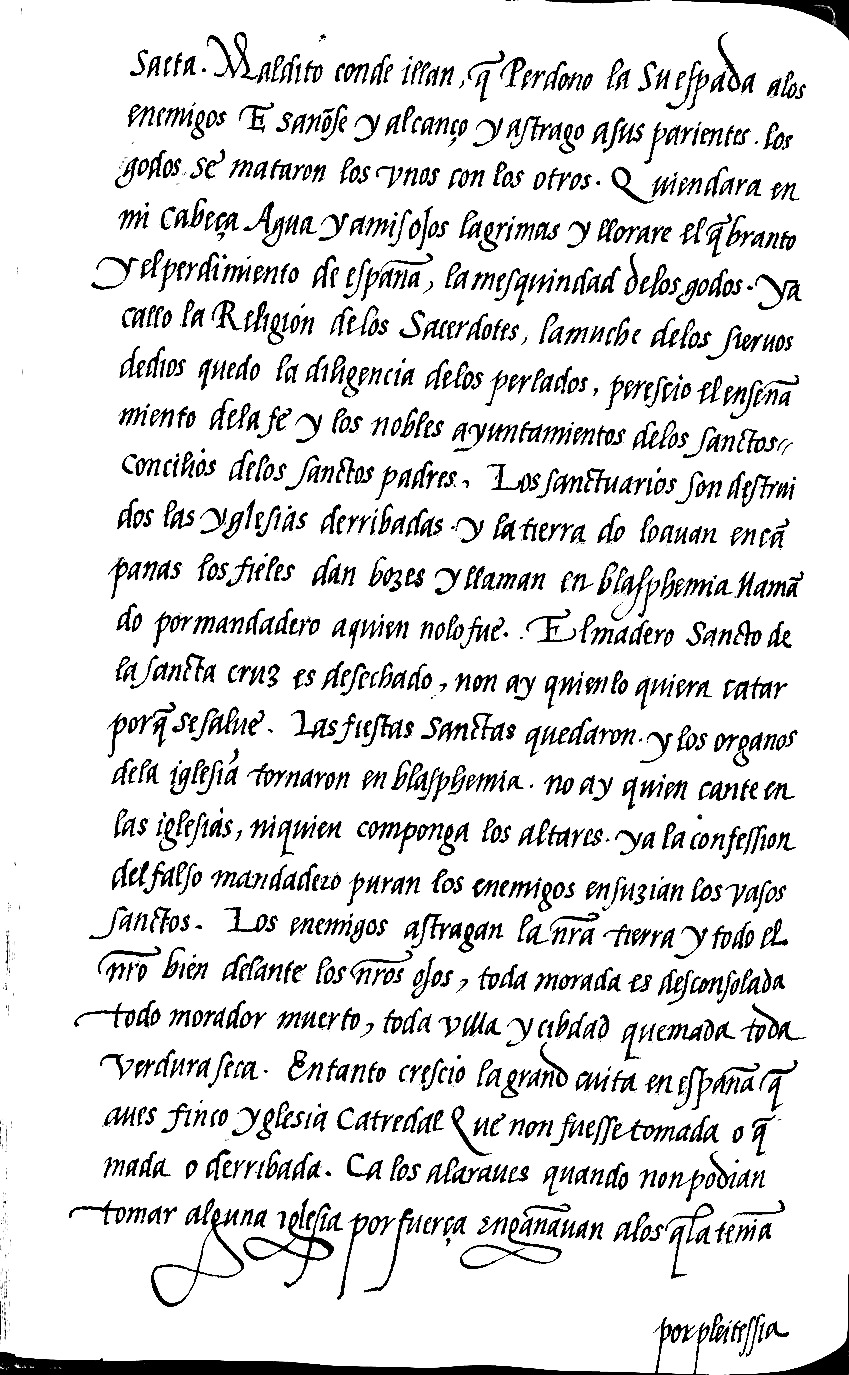 saeta. Maldito conde illan, q̄ Perdono la Su espada alos
enemigos E sanōse y alcanço y astrago asus parientes. los
godos se mataron los vnos con los otros. Quiendara en
mi Cabeça Agua y amis ojos lagrimas y llorare el q̄branto
y el perdimiento de españa, la mesquindad delos godos. Ya
callo la Religión delos Sacerdotes, lamuche delos sieruos
dedios quedo la diligencia delos perlados, perescio el enseña
miento dela fe y los nobles ayuntamientos delos sanctos
Concilios delos sanctos padres. Los sanctuarios son destrui
dos las yglesias derribadas y la tierra do loauan encā
panas los fieles dan bozes y llaman en blasphemia llamā
do pormandadero aquien nolo fue. El madero Sancto de
la sancta cruz es desechado, non ay quien lo quiera catar
porq̄ se salue. Las fiestas Sanctas quedaron. y los organos
dela iglesia tornaron en blasphemia. no ay quien cante en
las iglesias, niquien componga los altares. ya la confession
del falso mandadero puran los enemigos ensuzian los vasos
sanctos. Los enemigos astragan la nr̄a tierra y todo el
nr̄o bien delante los nr̄os ojos, toda morada es desconsolada
todo morador muerto, toda villa y cibdad quemada toda
Verdura seca. Entanto crescio la grand cuita en españa q̄
aues finco yglesia Catredal Que non fuesse tomada o q̄
mada o derribada. Ca los alaraues quando non podian
tomar alguna iglesia por fuerça engañauan alos q̄ la teniā
por pleitessia